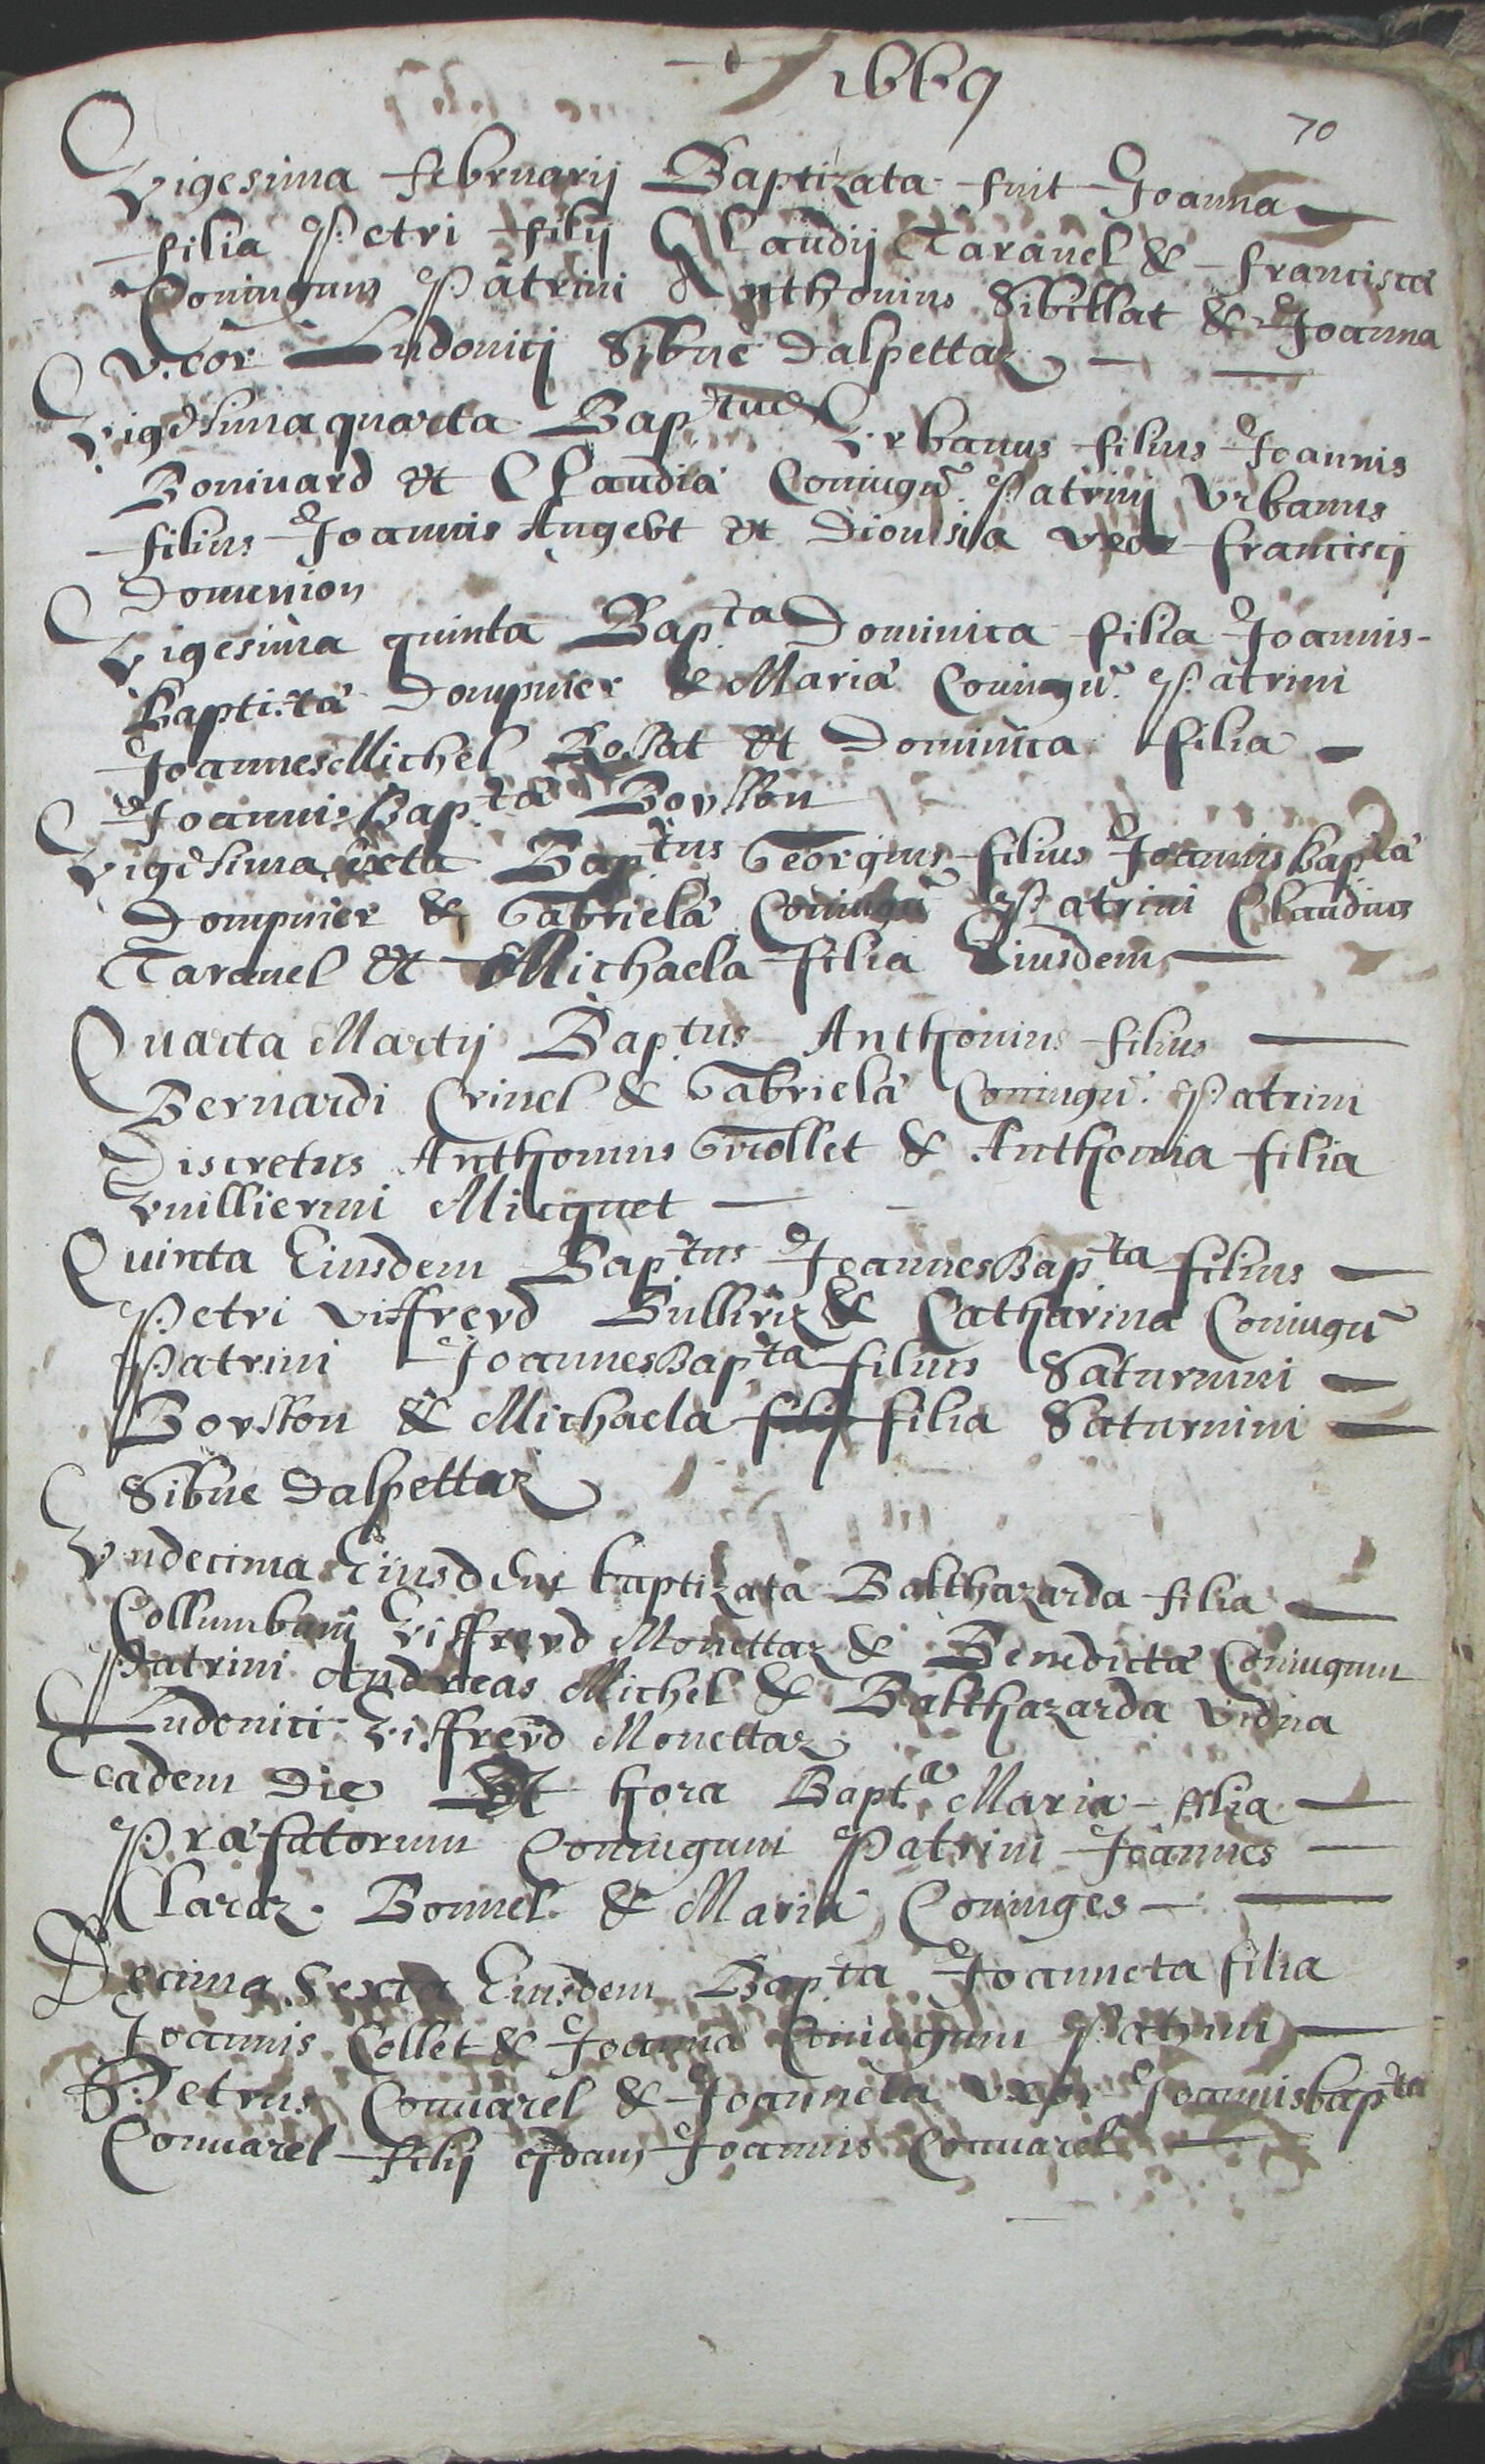 1669
70
Vigesima februarij Baptizata fuit Joanna
filia Petri filij Claudij Taravel & francisca
Coniugum Patrini Anthonius Sibillat & Joanna
vxor Ludovici Sibue Dalpettaz
Vigesima quarta Bap.tus Vrbanus filius Joannis
Bonivard et Claudia Coniugū. Patrinij Vrbanus
filius Joannis Augert et Dionisia vxor francisci
Domenion
Vigesima quinta Bap.ta Dominica filia Joannis
Baptista Dompnier & Maria Coniugū. Patrini
Joannes Michel Rossat et Dominica filia
Joannis Bap.ta Borsson
Vigesima sexta Bap.tus Georgius filius Joannis Bap.ta
Dompnier & Gabriela Coniugū Patrini Claudius
Taravel et Michaela filia Eiusdem
Quarta Martij Bap.tus Anthonius filius
Bernardi Crinel & Gabriela Coniugū. Patrini
Discretus Anthonius Grollet & Anthonia filia
Vuilliermi Micquet
Quinta Eiusdem Bap.tus Joannes Bap.ta filius
Petri Viffrerd Bulliriz & Catharina Coniugū
Patrini Joannes Bap.ta filius Saturnini
Borsson & Michaela filij filia Saturnini
Sibue Dalpettaz
Vndecima Eiusdem baptizata Balthazarda filia
Collumbani Viffrerd Monettaz & Benedicta Coniugum
Patrini Andreas Michel & Balthazarda vidua
Ludovici Viffrerd Monettaz
eadem Die Et hora Bapt.a Maria filia
Prafatorum Coniugum Patrini Joannes
Claraz. Bonnel & Maria Coniuges
Decima Sexta Eiusdem Bap.ta Joanneta filia
Joannis Collet & Joanna Coniugum Patrini
Petrus Couvarel & Joanneta vxor Joannis bap.ta
Couvarel filij Joannis Couvarel